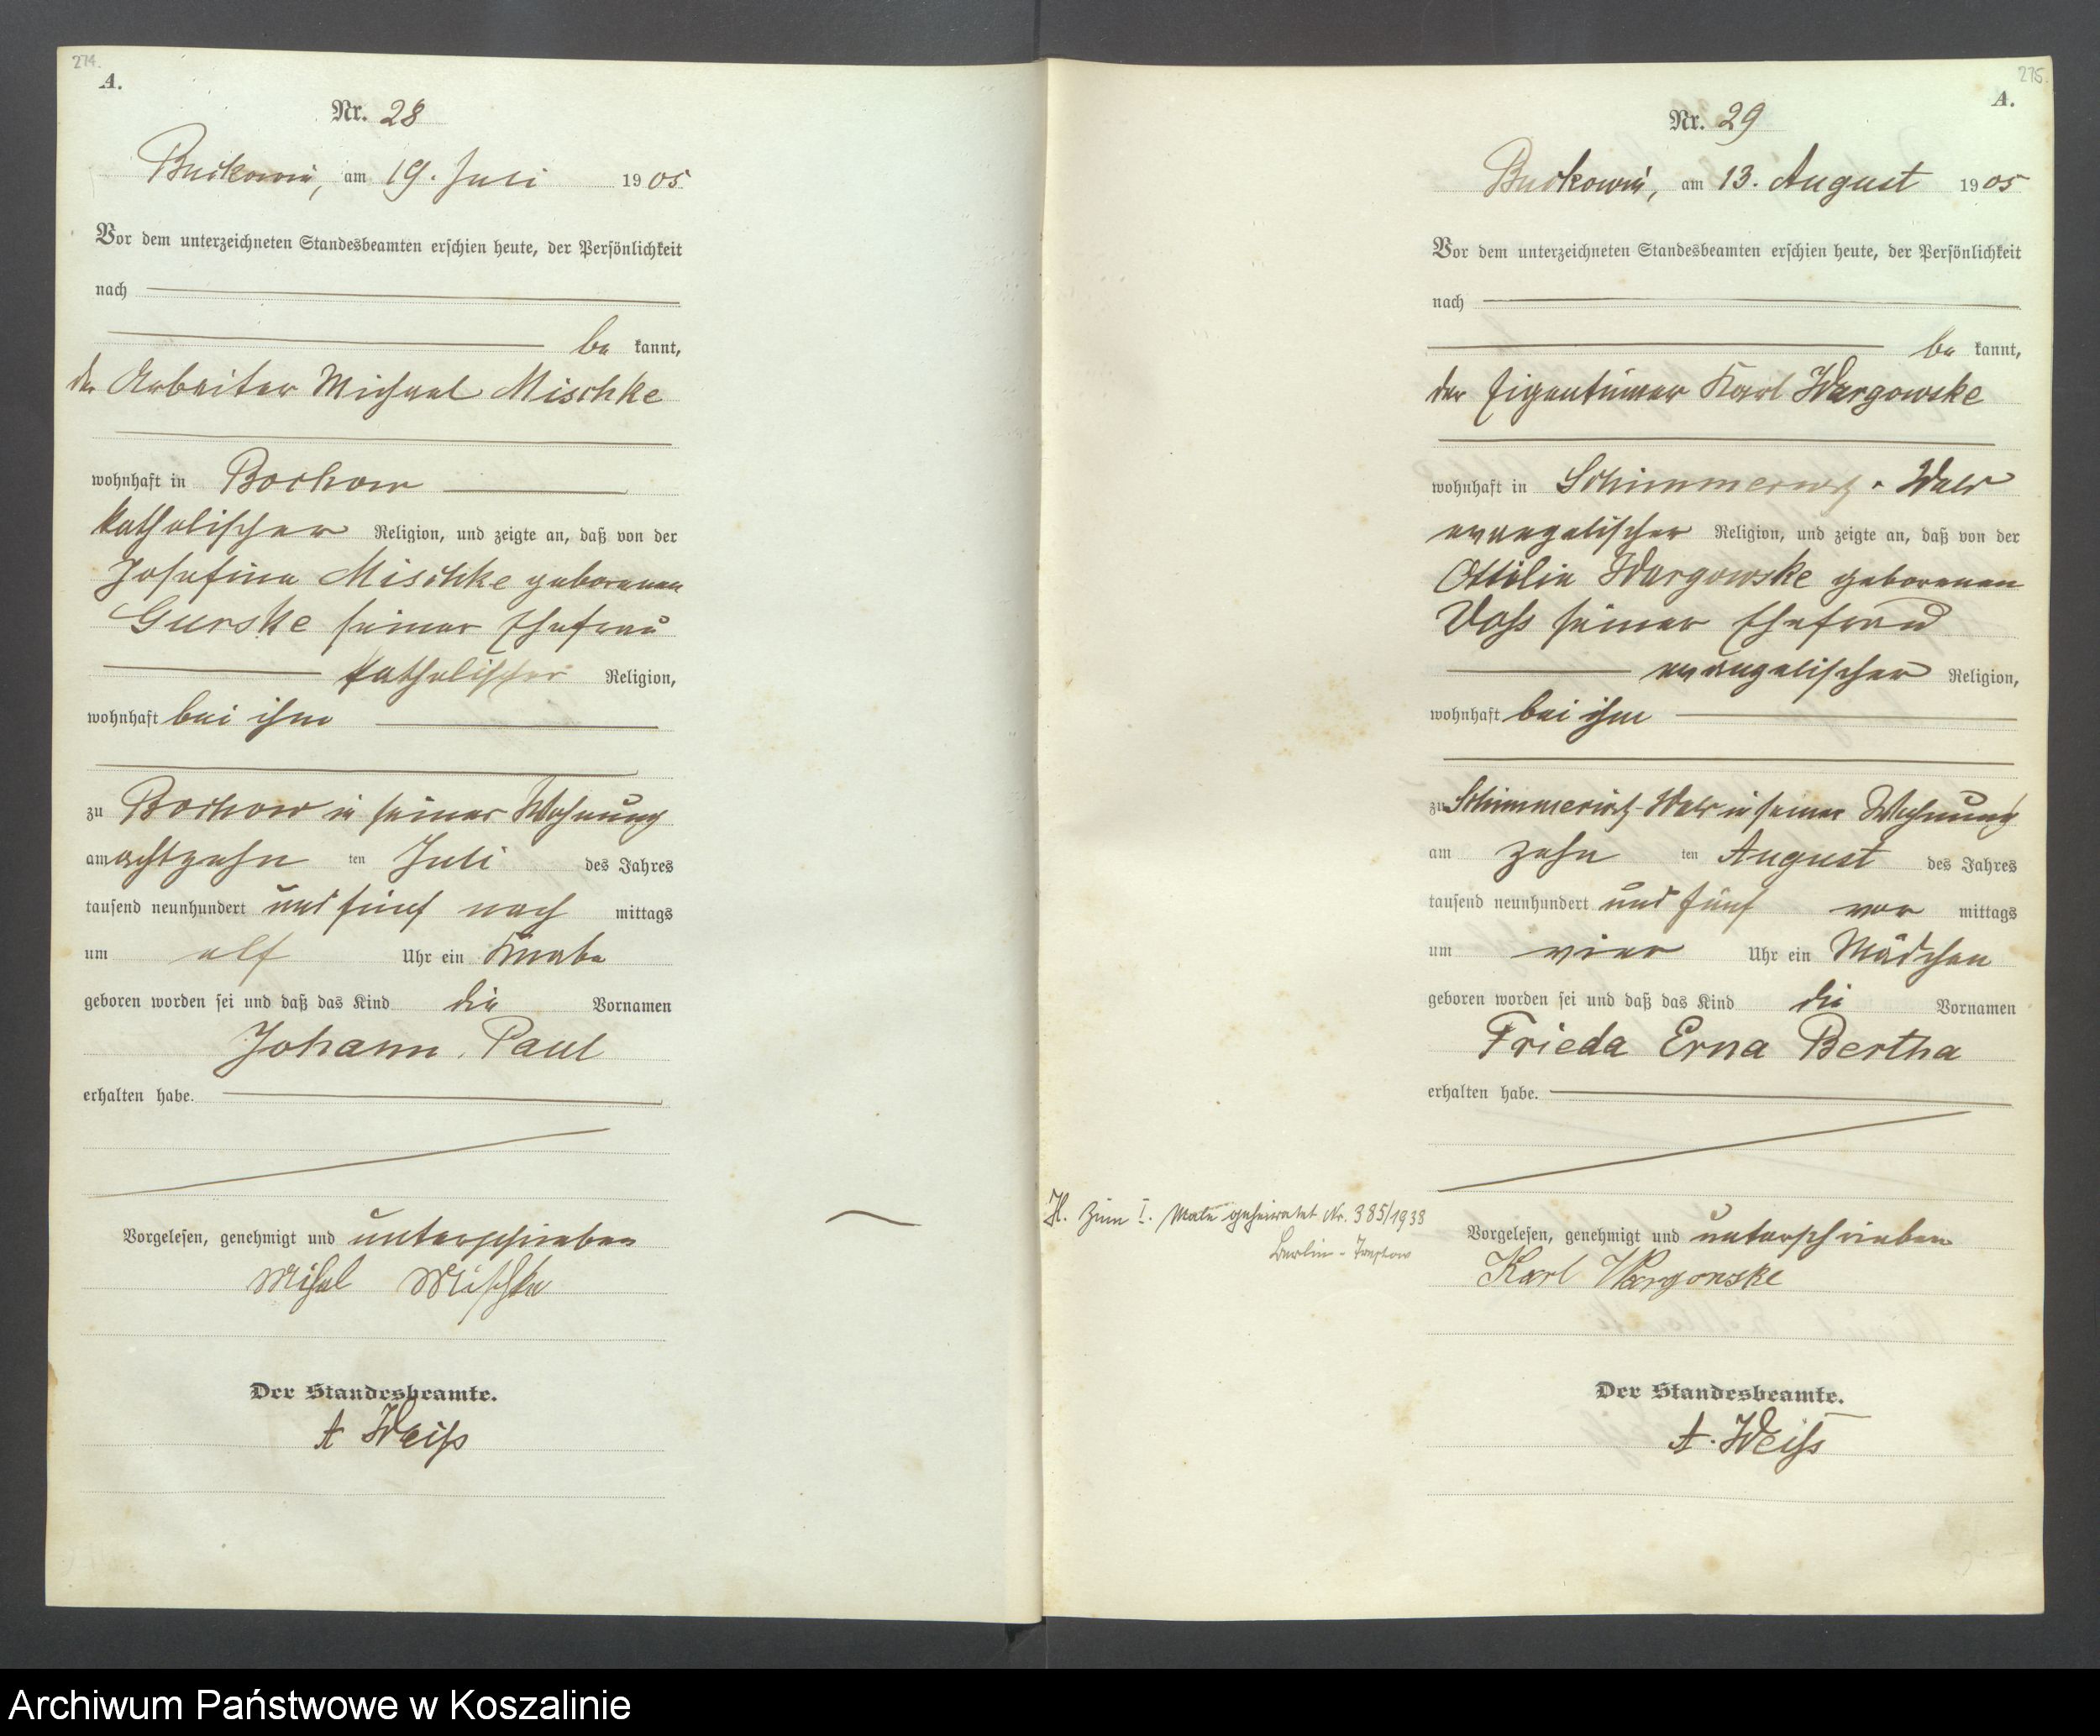 274.
A.
Nr. 28
Buckowin, am 19. Juli 1905
Vor dem unterzeichneten Standesbeamten erschien heute, der Persönlichkeit
nach
be kannt,
der Arbeiter Michael Mischke
wohnhaft in Bochow
katholischer Religion, und zeigte an, daß von der
Josefine Mischke geborenen
Gurske seiner Ehefrau
katholischer Religion,
wohnhaft bei ihm
zu Bochow in seiner Wohnung
am achtzehn ten Juli des Jahres
tausend neunhundert und fünf nach mittags
um elf Uhr ein Knabe
geboren worden sei und daß das Kind die Vornamen
Johann Paul
erhalten habe.
Vorgelesen, genehmigt und unterschrieben
Mihal Mischke
Der Standesbeamte.
A Weiß
275.
A.
Nr. 29
Buckowin, am 13. August 1905
Vor dem unterzeichneten Standesbeamten erschien heute, der Persönlichkeit
nach
be kannt,
der Eigentümer Karl Wargowske
wohnhaft in Schimmerwitz-Wald
evangelischer Religion, und zeigte an, daß von der
Ottilie Wargowske geborenen
Voß seiner Ehefrau
evangelischer Religion,
wohnhaft bei ihm
zu Schimmerwitz-Wald in seiner Wohnung
am zehn ten August des Jahres
tausend neunhundert und fünf vor mittags
um vier Uhr ein Mädchen
geboren worden sei und daß das Kind die Vornamen
Frieda Erna Bertha
erhalten habe.
H. Zum I. Male geheiratet Nr. 385/1938
Berlin-Treptow
Vorgelesen, genehmigt und unterschrieben
Karl Wargowske
Der Standesbeamte.
A. Weiß
Archiwum Państwowe w Koszalinie